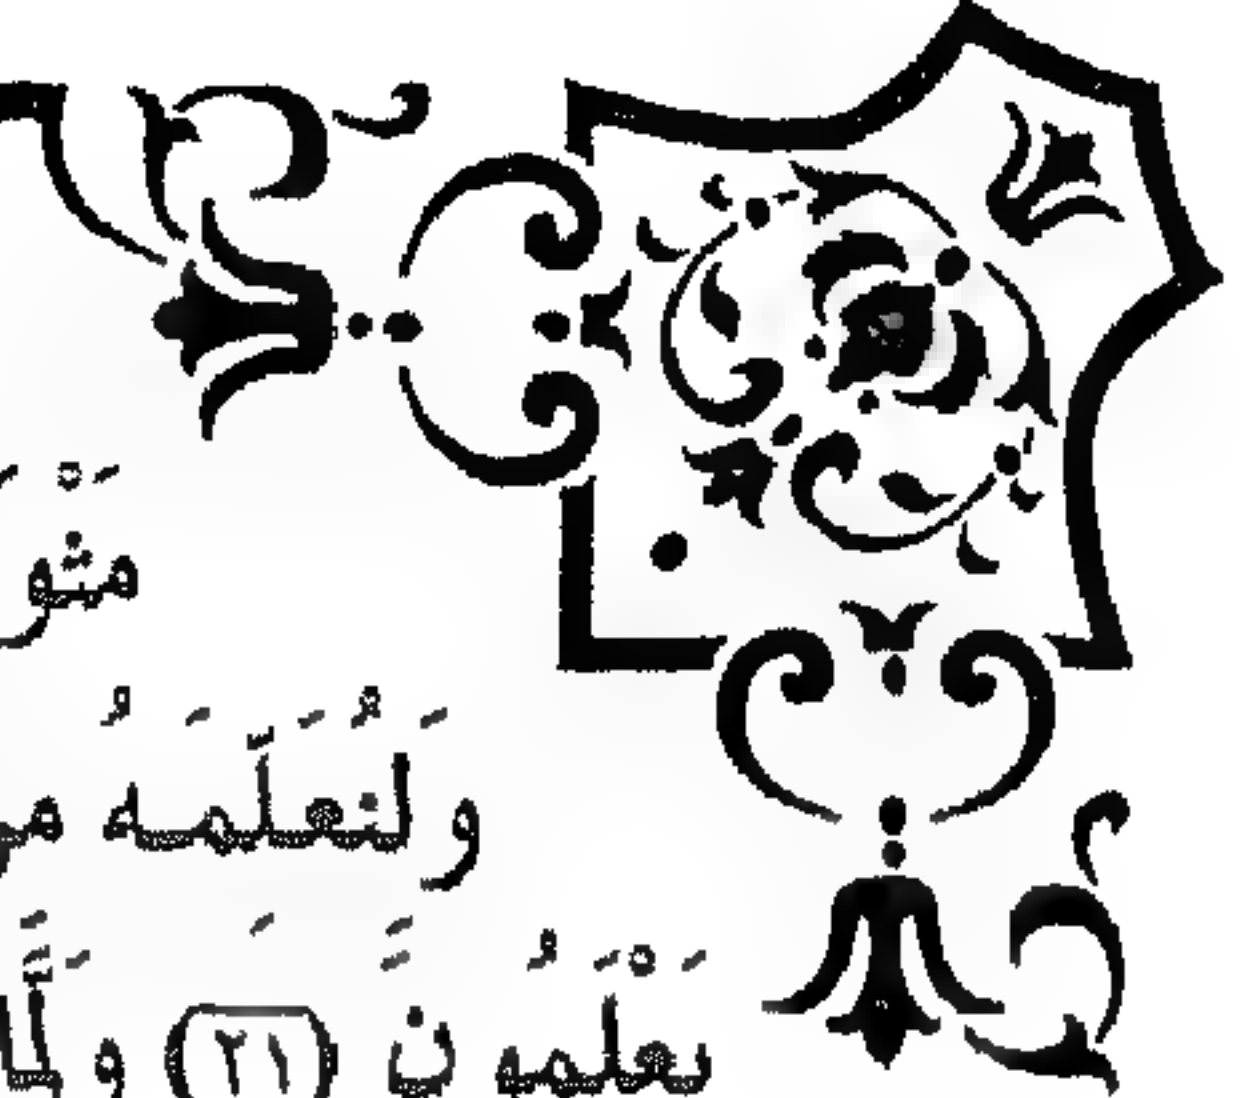 مَثْوَ
وَلِنُعَلِّمَهُ مِ
يَعْلَمُونَ (٢١) وَلَمَّا